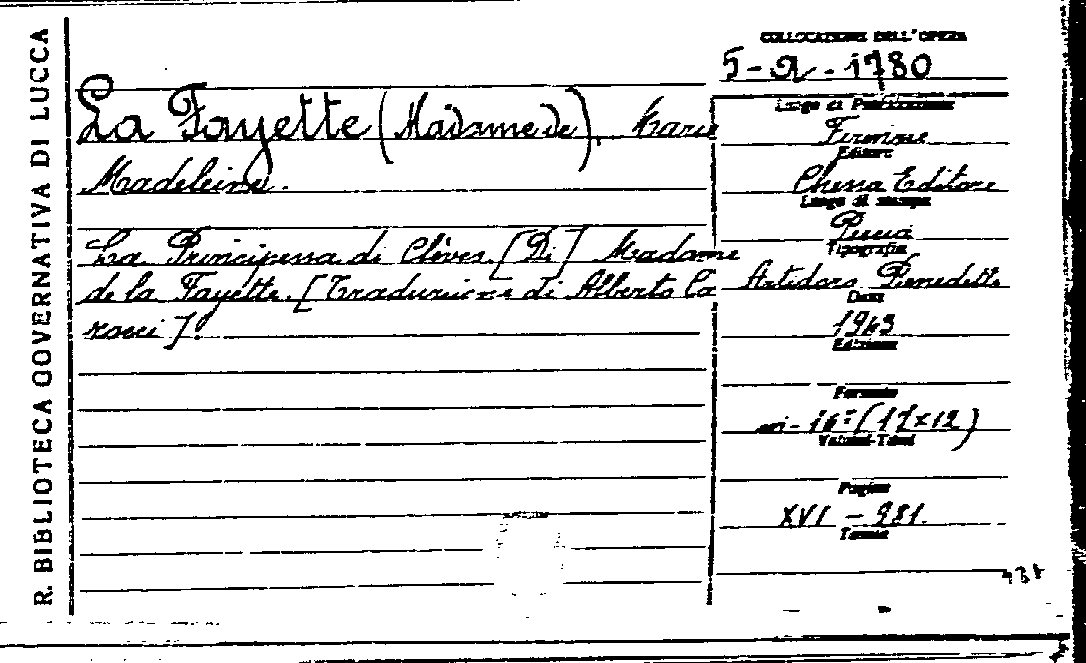 R. BIBLIOTECA GOVERNATIVA DI LUCCA
COLLOCAZIONE DELL'OPERA
5-a-1780
La Fayette (Madame de). Marie
Madeleine.
La Principessa di Clèves. [Di] Madame
de la Fayette. [Traduzione di Alberto Ca
rocci].
Luogo di Pubblicazione
Firenze
Editore
Chessa Editore
Luogo di stampa
Pescia
Tipografia
Artidoro Benedetti
Data
1943
Edizione
Formato
in-16° (17×12)
Volumi-Tomi
Pagine
XVI -